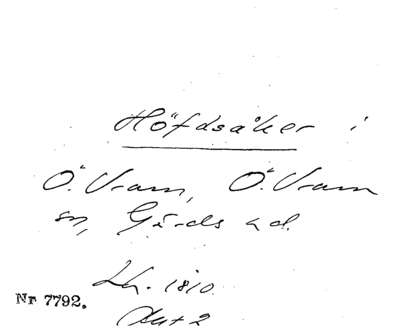 Höfdsåker i
Ö. Vram, Ö. Vram
sn, Gärds hd.
Lh. 1810
Nr 7792.
Akt 2